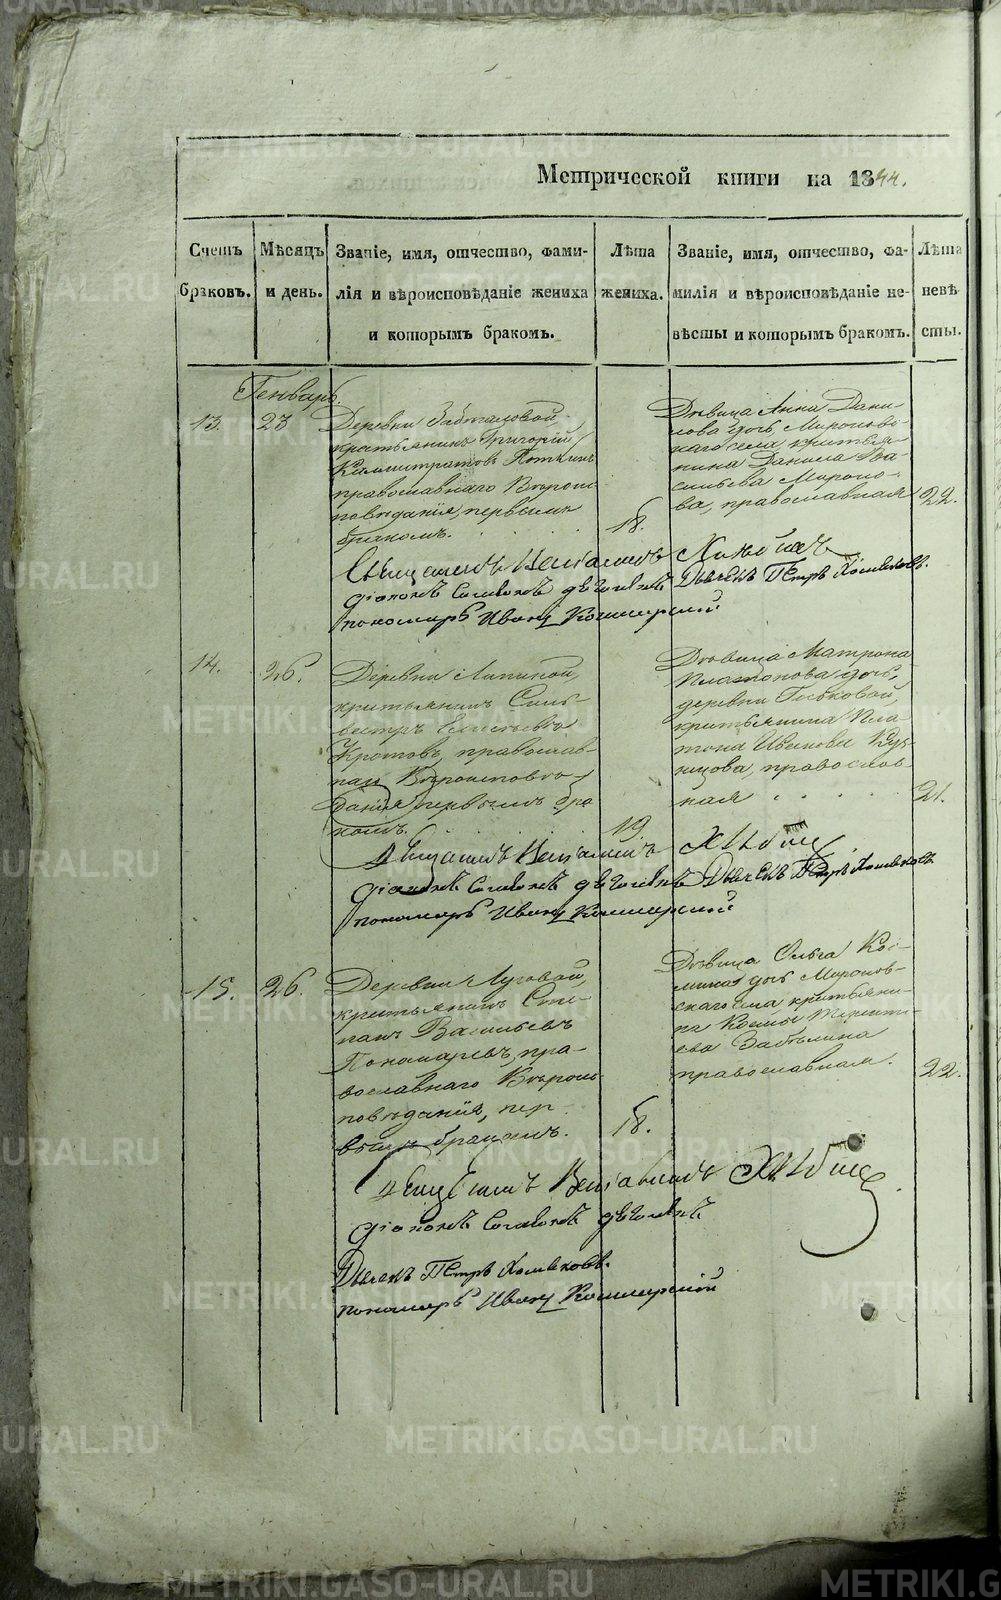 Метрической книги на 1844.
Счетъ браковъ.
Мѣсяцъ и день.
Званіе, имя, отчество, фамилія и вѣроисповѣданіе жениха и которымъ бракомъ.
Лѣта жениха.
Званіе, имя, отчество, фамилія и вѣроисповѣданіе невѣсты и которымъ бракомъ.
Лѣта невѣсты.
Генварь.
13.
23
Деревни
крестьянинъ Григорій
православнаго Вѣроис-
повѣданія, первымъ
бракомъ.
18.
Дѣвица Анна Дани-
лова дочь Мироновс-
каго села крестья-
нина Данила Ва-
сильева Мироно-
ва, православная
22.
Священникъ Веніаминъ
діаконъ
Дьячекъ Петръ Хомяковъ.
пономарь Иванъ
14.
26.
Деревни Липиной,
крестьянинъ Силь-
вестръ
Кротовъ, православ-
наго Вѣроисповѣ-
данія первымъ бра-
комъ.
19
Дѣвица Матрона
Платонова дочь,
деревни
крестьянина Пла-
тона Иванова Куз-
нецова, православ-
ная
21.
Священникъ Веніаминъ
діаконъ
Дьячекъ Петръ Хомяковъ
пономарь Иванъ
15.
26.
Деревни Луговой,
крестьянинъ Сте-
панъ Васильевъ
Пономаревъ, пра-
вославнаго Вѣроис-
повѣданія, пер-
вымъ бракомъ.
18.
Дѣвица Ольга Кос-
мина дочь Миронов-
скаго села крестьяни-
на Космы Теренть-
ева Забѣлина
православная.
22.
Священникъ Веніаминъ
діаконъ
Дьячекъ Петръ Хомяковъ.
пономарь Иванъ
METRIKI.GASO-URAL.RU